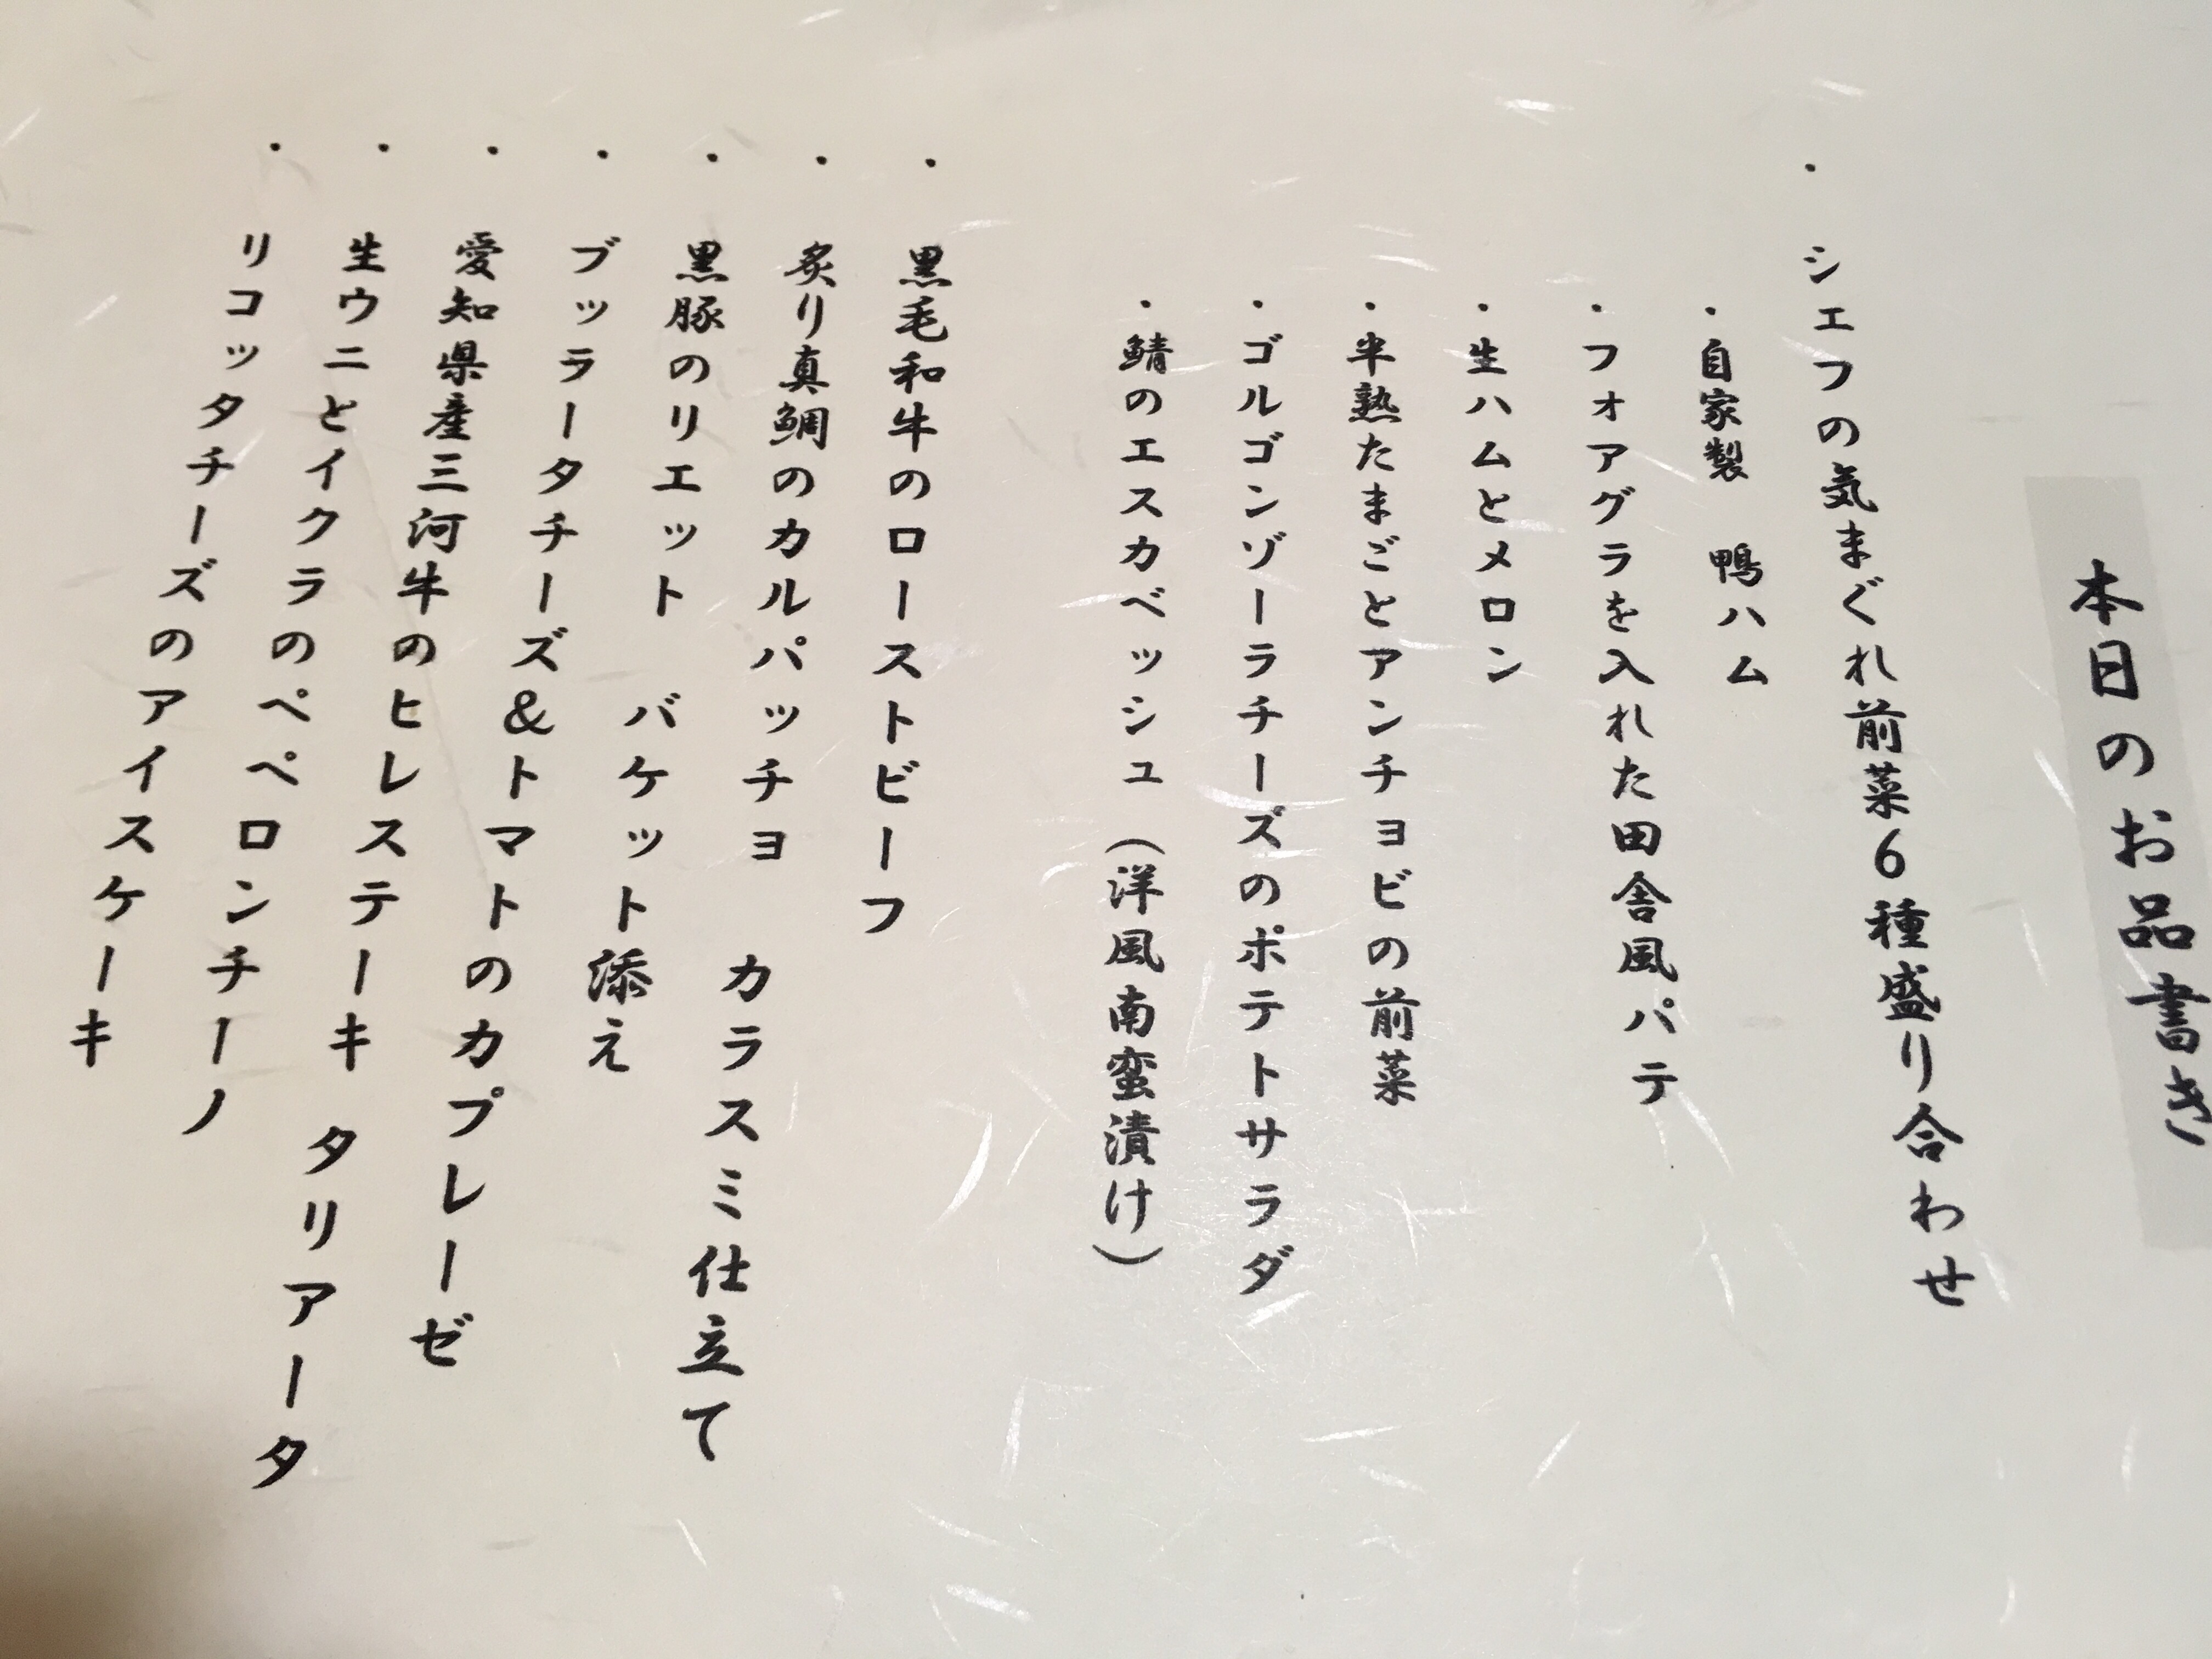 本日のお品書き
・ シェフの気まぐれ前菜6種盛り合わせ
・自家製 鴨ハム
・フォアグラを入れた田舎風パテ
・生ハムとメロン
・半熟たまごとアンチョビの前菜
・ゴルゴンゾーラチーズのポテトサラダ
・鯖のエスカベッシュ（洋風南蛮漬け）
・ 黒毛和牛のローストビーフ
・ 炙り真鯛のカルパッチョ カラスミ仕立て
・ 黒豚のリエット バケット添え
・ ブッラータチーズ＆トマトのカプレーゼ
・ 愛知県産三河牛のヒレステーキ タリアータ
・ 生ウニとイクラのペペロンチーノ
・ リコッタチーズのアイスケーキ